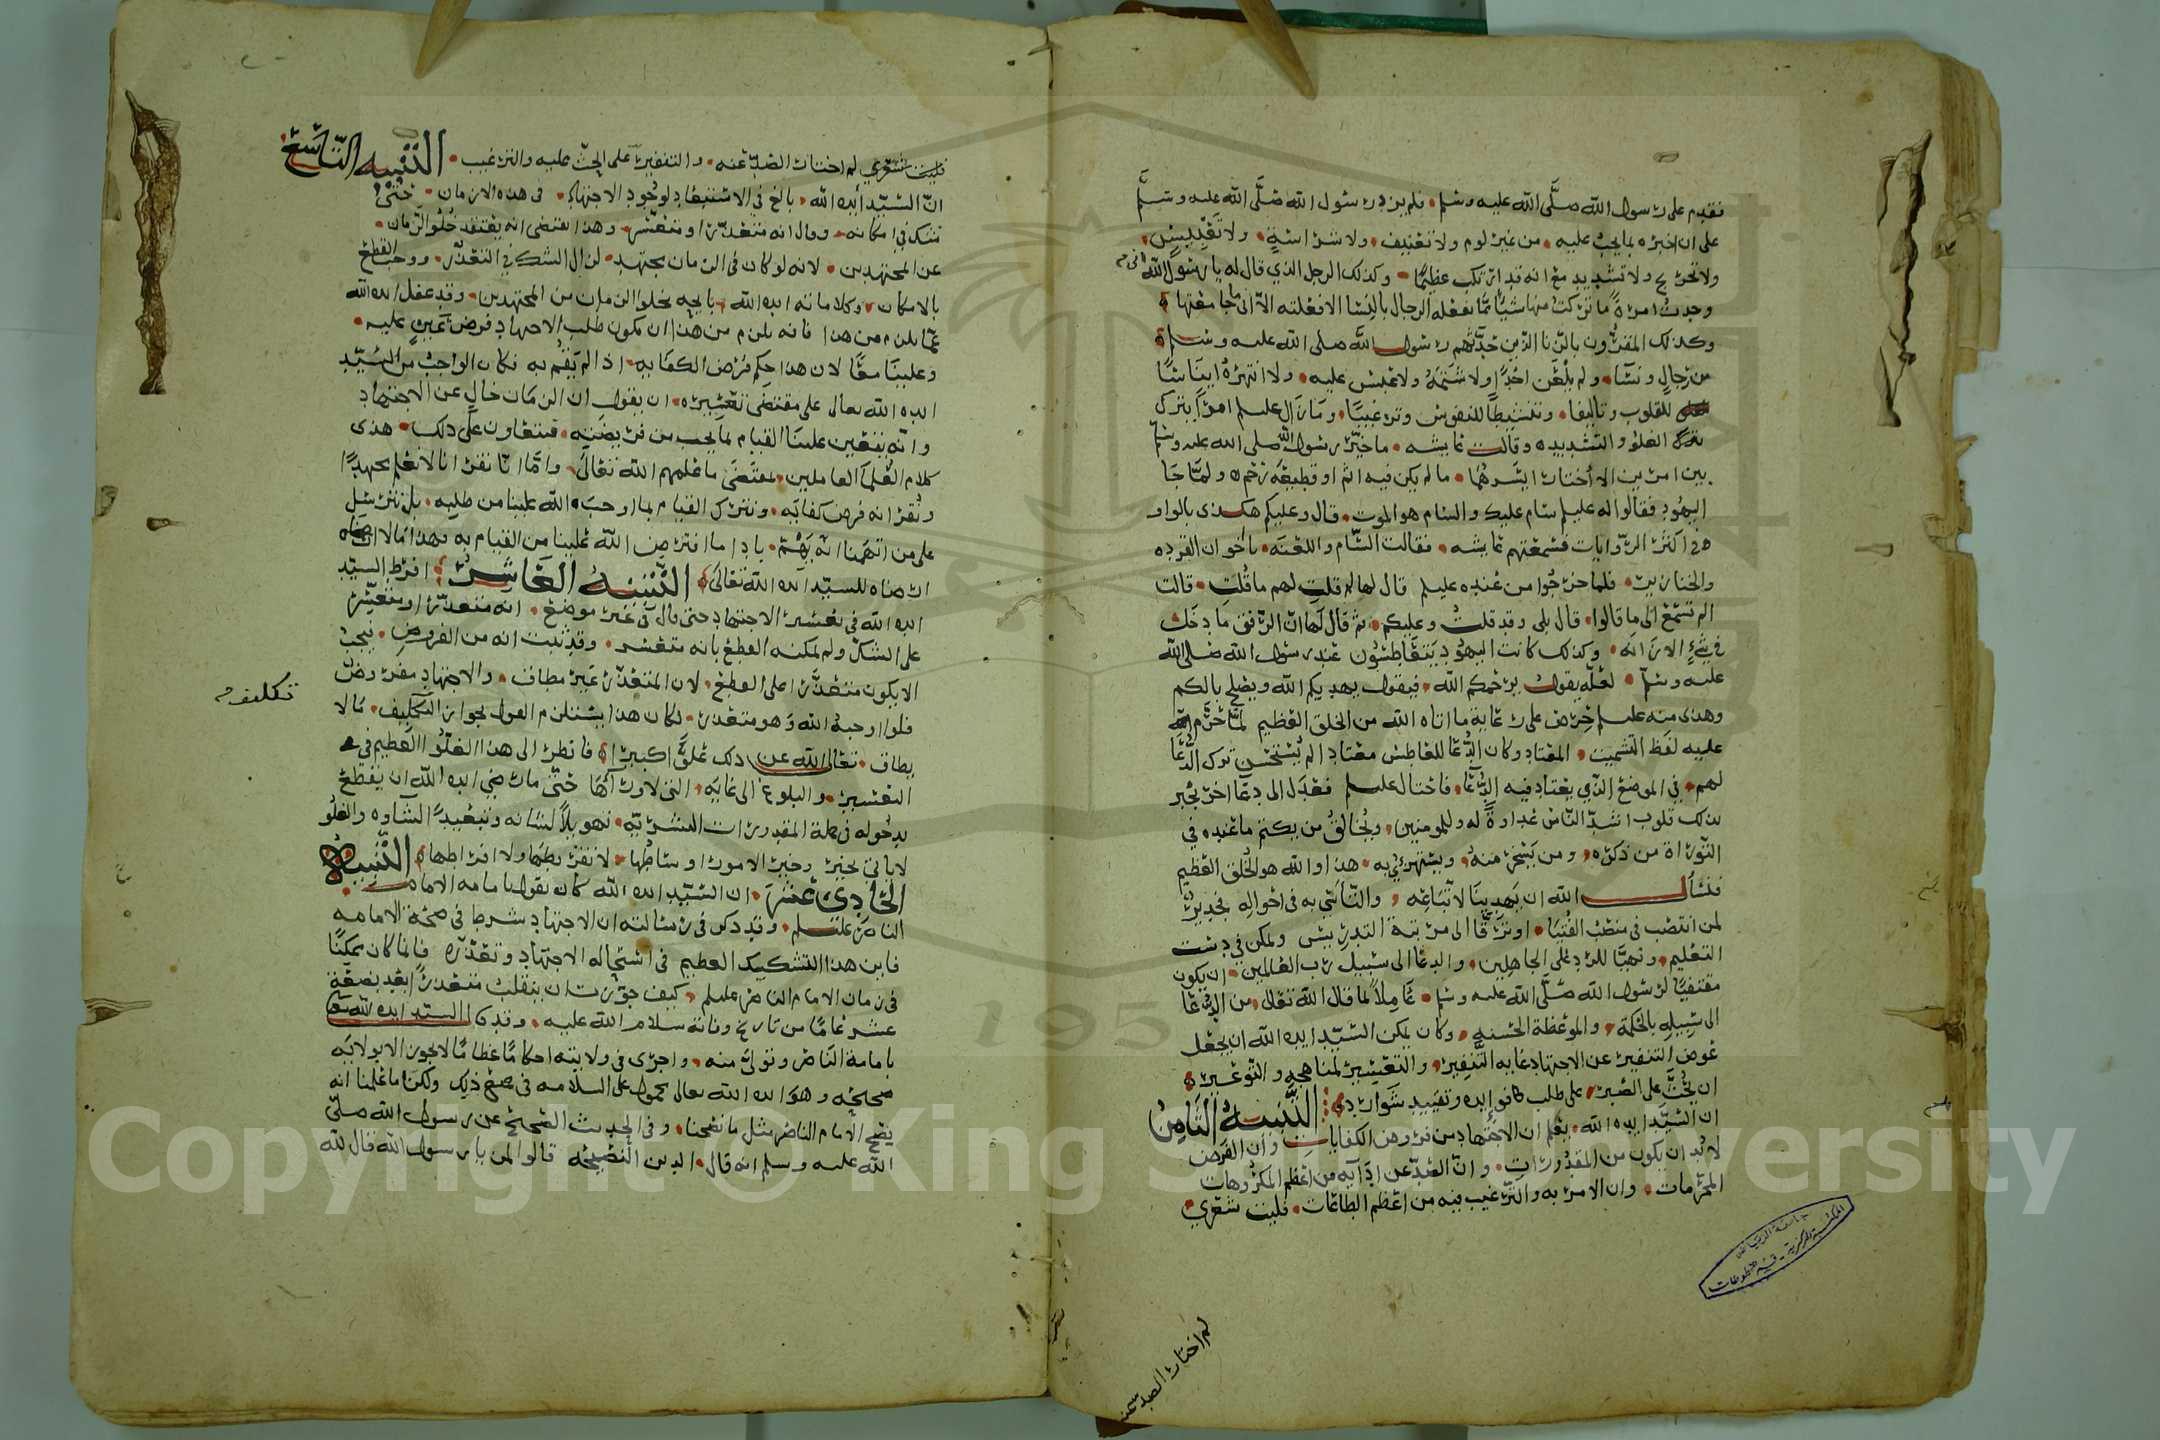 فقدم على رسول الله صلى الله عليه وسلم فلم يزد رسول الله صلى الله عليه وسلم
على ان اخبره بما يجب عليه من غير لوم ولا تعنيف ولا شراسة ولا تفليس
ولا تحريج ولا تشديد مع انه قد ارتكب عظيما وكذلك الرجل الذي قال له يا رسول الله اني
وجدت امرة ما تركت منها شيا مما يفعله الرجال بالنسا الا فعلته الا اني ما جامعتها
وكذلك المقرون بالزنا الذين حدهم رسول الله صلى الله عليه وسلم
من رجال ونسآ ولم يلعن احدا ولا شتمه ولا عبس عليه ولا انتهره ايناسا
للقلوب وتاليفا وتنشيطا للنفوس وترغيبا وما زال عليلم امرا بترك
الغلو والتشديد وقالت عايشه ما خير رسول الله صلى الله عليه وسلم
بين امرين الا اختار ايسرهما ما لم يكن فيه اثم او قطيعة رحم ولما جا
اليهود فقالوا له عليلم سام عليك والسام هو الموت قال وعليكم هكذى بالواو
في اكثر الروايات فسمعتهم عايشه فقالت السام واللعنه يا اخوان القرده
والخنازير فلما خرجوا من عنده عليلم قال لها لم قلت لهم ما قلت قالت
الم تسمع الى ما قالوا قال بلى وقد قلت وعليكم ثم قال لها ان الرفق ما دخل
في شيء الا زانه وكذلك كانت اليهود يتعاطسون عند رسول الله صلى الله
عليه وسلم لعله يقول يرحمكم الله فيقول يهديكم الله ويصلح بالكم
وهذى منه عليلم حرص على رعاية ما اتاه الله من الخلق العظيم لما حرم الله
عليه لفظ التشميت المعتاد وكان الدعا للعاطس معتادا لم يستحسن ترك الدعا
لهم في الموضع الذي يعتاد فيه الدعا فاحتال عليلم فعدل الى دعآ اخر يجبر
بذلك قلوب اشد الناس عداوة له وللمومنين ويخالق من يكتم ما عنده في
التوراة من ذكره ومن يسخر منه ويستهزئ به هذا والله هو الخلق العظيم
فنسأل الله ان يهدينا لاتباعه والتأسي به في احواله فجدير
لمن انتصب في منصب الفتيا او ترقا الى مرتبة التدريس وتمكن في دست
التعليم وتهيا للرد على الجاهلين والدعا الى سبيل رب العالمين ان يكون
مقتفيا لرسول الله صلى الله عليه وسلم عاملا بما قال الله تعالى من الدعا
الى سبيله بالحكمة والموعظة الحسنه وكان يمكن السيد ايده الله ان يجعل
عوض التنفير عن الاجتهاد غاية التنفير والتعسير لمناهجه والتوعير
ان يحث على الصبر على طلب فوايده وتقييد شوارده التنبيه الثامن
ان السيد ايده الله يعلم ان الاجتهاد من فروض الكفايات وان الفرض
لا بد ان يكون من المقدورات وان الصد عن ادآيه من اعظم المكروهات
المحرمات وان الامر به والترغيب فيه من اعظم الطاعات فليت شعري
لم اختار الصد عنه
فليت شعري لم اختار الصد عنه والتنفير على الحث عليه والترغيب التنبيه التاسع
ان السيد ايده الله بالغ في الاستبعاد لوجود الاجتهاد في هذه الازمان حتى
شك في امكانه وقال انه متعذر او متعسر وهذا يقتضي انه يعتقد خلو الزمان
عن المجتهدين لانه لو كان في الزمان مجتهد لزال الشك في التعذر ووجب القطع
بالامكان وكلامه ايده الله يخلو الزمان من المجتهدين وقد غفل ايده الله
عما يلزم من هذا فانه يلزم من هذا ان يكون طلب الاجتهاد فرض عين عليه
وعلينا معا لان هذا حكم فرض الكفايه اذا لم يقم به فكان الواجب من السيد
ايده الله تعالى على مقتضى تعسيره ان يقول ان الزمان خال عن الاجتهاد
وانه يتعين علينا القيام بما يجب من فريضته فنتعاون على ذلك هذى
كلام العلما العاملين بمقتضى ما علمهم الله تعالى واما انا نقر انا لا نعلم مجتهدا
ونقر انه فرض كفايه ونترك القيام بما اوجب الله علينا من طلبه بل نترسل
على من اتهمنا انه يهتم باداء ما افترض الله علينا من القيام به فهذا مالا
ارضاه للسيد ايده الله تعالى التنبيه العاشر افرط السيد
ايده الله في تعسير الاجتهاد حتى قال في غير موضع انه متعذر او متعسر
على الشك ولم يمكنه القطع بانه متعسر وقد ثبت انه من الفروض فيجب
الا يكون متعذرا على القطع لان المتعذر غير مطاق والاجتهاد مفروض
فلو اوجبه الله وهو متعذر لكان هذا يستلزم القول بجواز التكليف مالا
تكليف
يطاق تعالى الله عن ذلك علوا كبيرا فانظر الى هذا الغلو العظيم في
التعسير والبلوغ الى غايه التي لا ورآها حتى ما رضي ايده الله ان يقطع
بدخوله في جملة المقدورات البشريه تهويلا لشانه وتبعيدا لشاوه والغلو
لا ياتي بخير وخير الامور اوساطها لا تفريطها ولا افراطها التنبيه
الحادي عشر ان السيد ايده الله كان يقول بامامه الامام
الناصر عليلم وقد ذكر في رسالته ان الاجتهاد شرط في صحة الامامه
فاين هذا التشكيك العظيم في استحاله الاجتهاد وتعذره فلما كان ممكنا
في زمان الامام الناصر عليلم كيف جوزت ان ينقلب متعذرا بعد بضعة
عشر عاما من تاريخ وفاته سلام الله عليه وقد قال السيد ايده الله تعا
بامامة الناصر وتولى منه واجرى في ولايته احكاما عظاما لا تجوز الا بولايه
صحيحه وهو ايده الله تعالى محمول على السلامه في جميع ذلك ولكن ما علمنا انه
نصح الامام الناصر مثل ما نصحنا وفي الحديث الصحيح عن رسول الله صلى
الله عليه وسلم انه قال الدين النصيحه قالوا لمن يا رسول الله قال لله
المكتبة المركزية - قسم مخطوطات
Copyright © King Saud University
195